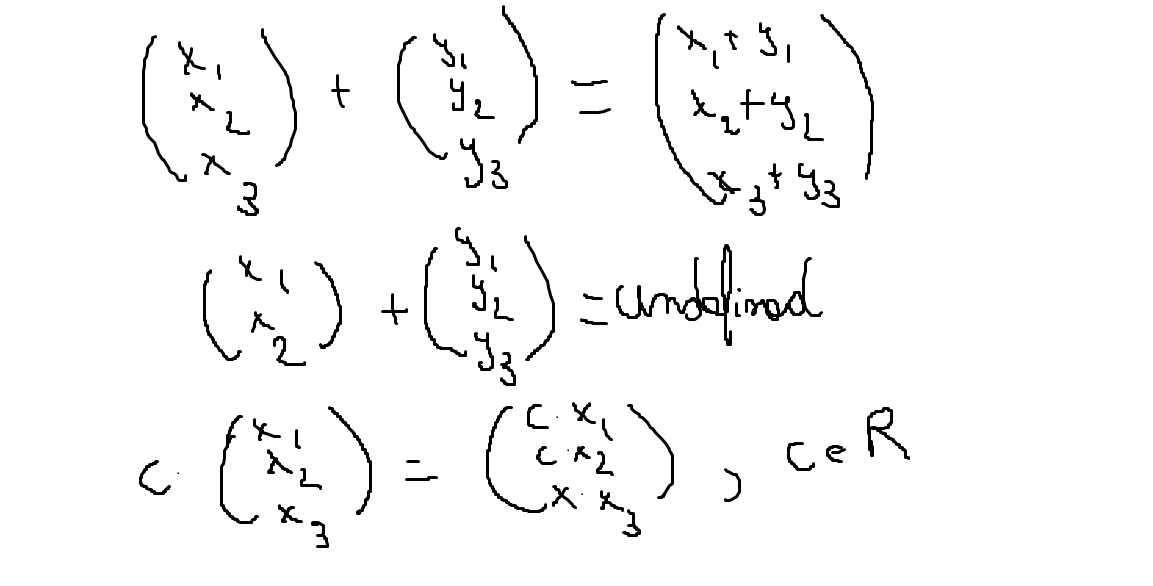 (x₁ x₂ x₃) + (y₁ y₂ y₃) = (x₁+y₁ x₂+y₂ x₃+y₃)
(x₁ x₂) + (y₁ y₂ y₃) = undefined
c · (x₁ x₂ x₃) = (c·x₁ c·x₂ x·x₃), c ∈ R